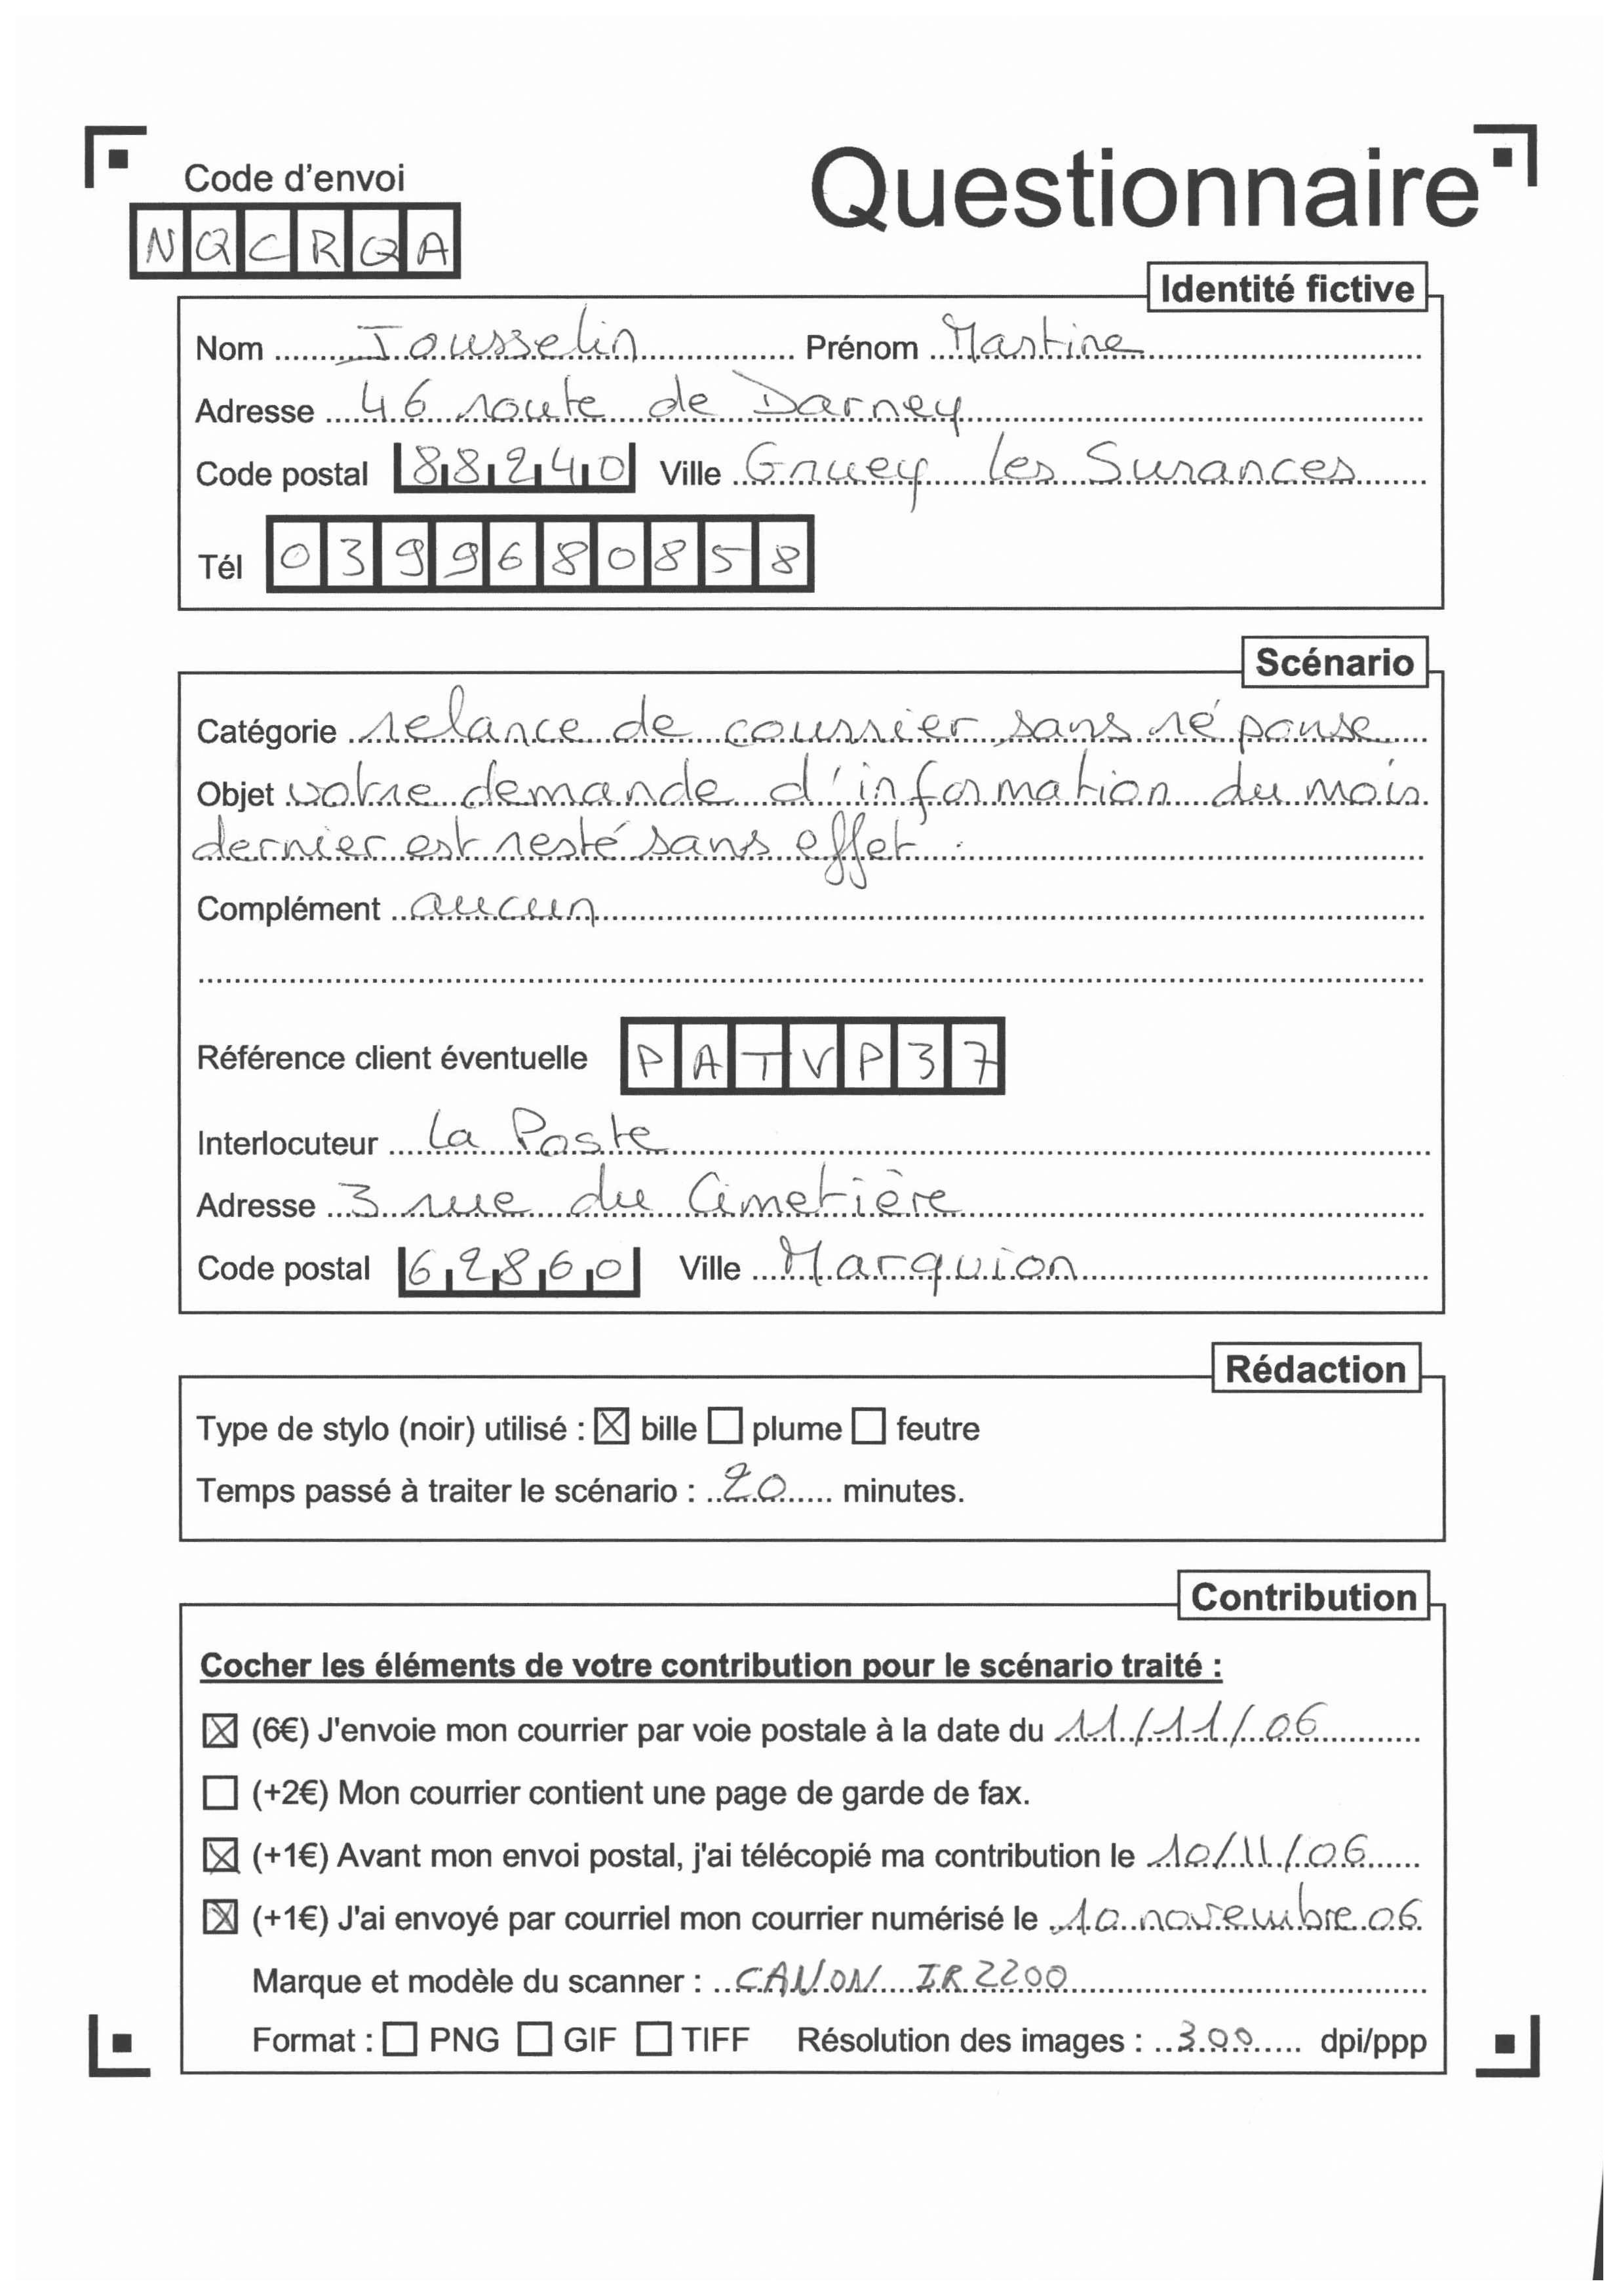 Code d'envoi
Questionnaire
NQCRQA
Identité fictive
Nom Jousselin Prénom Martine
Adresse 46 route de Darney
Code postal 88240 Ville Gruey les Surances
Tél 0399680858
Scénario
Catégorie relance de courrier sans réponse
Objet votre demande d'information du mois
dernier est resté sans effet.
Complément aucun
Référence client éventuelle PATVP37
Interlocuteur La Poste
Adresse 3 rue du Cimetière
Code postal 62860 Ville Marquion
Rédaction
Type de stylo (noir) utilisé : ☒ bille ☐ plume ☐ feutre
Temps passé à traiter le scénario : 20 minutes.
Contribution
Cocher les éléments de votre contribution pour le scénario traité :
☒ (6€) J'envoie mon courrier par voie postale à la date du 11/11/06
☐ (+2€) Mon courrier contient une page de garde de fax.
☒ (+1€) Avant mon envoi postal, j'ai télécopié ma contribution le 10/11/06
☒ (+1€) J'ai envoyé par courriel mon courrier numérisé le 10 novembre 06
Marque et modèle du scanner : CANON IR2200
Format : ☐ PNG ☐ GIF ☐ TIFF Résolution des images : 300 dpi/ppp